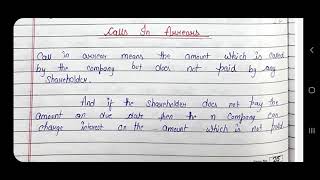 Calls In Arrears
Call in arrear means the amount which is called
by the company but does not paid by any
shareholder.
And if the shareholder does not pay the
amount on due date then the n Company can
charge interest on the amount which is not paid